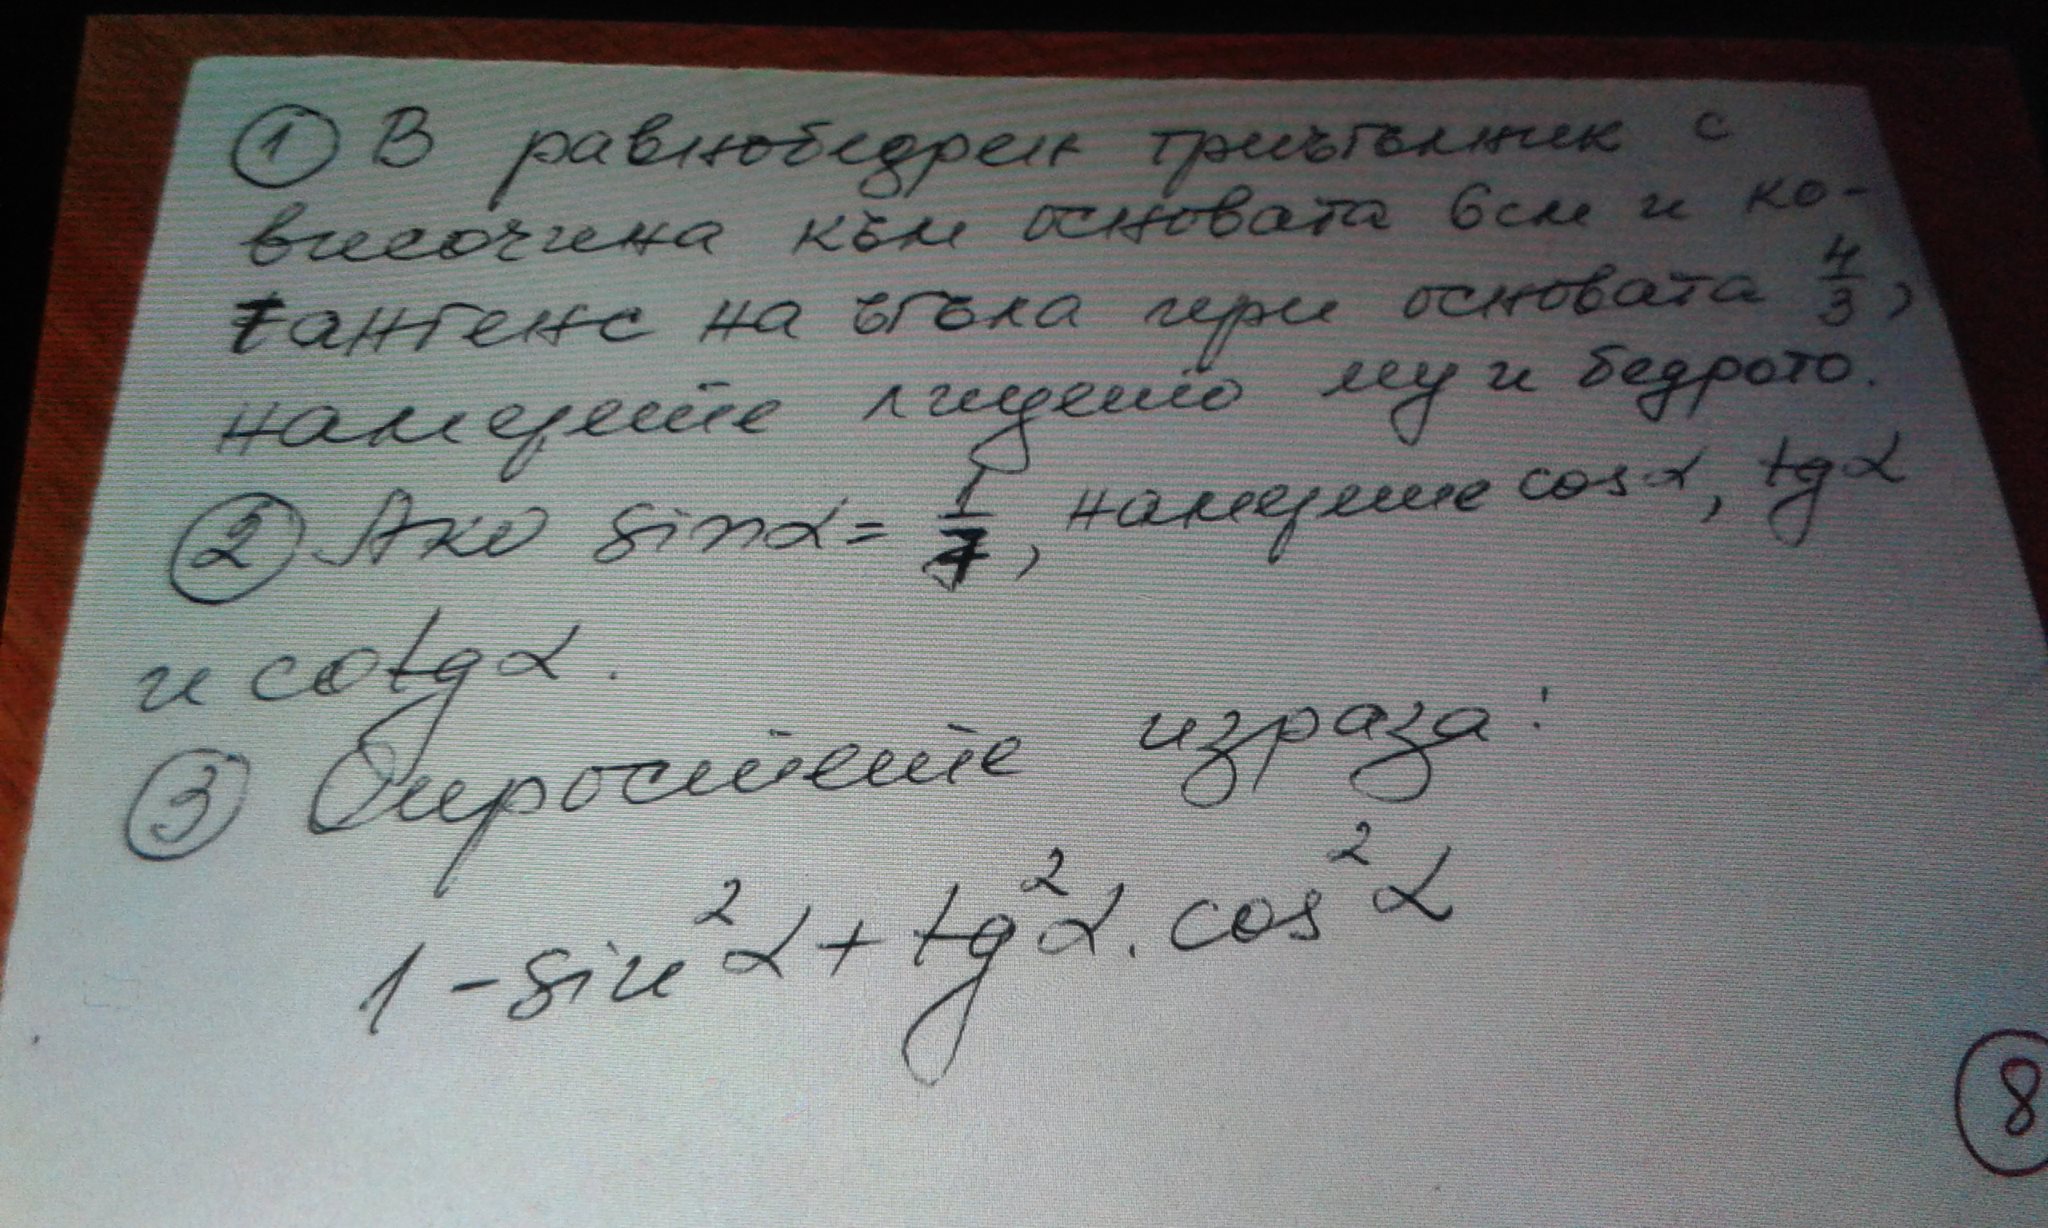 ① В равнобедрен триъгълник с
височина към основата 6см и ко-
тангенс на ъгъла при основата 4/3,
намерете лицето му и бедрото.
② Ако sinα = 1/7, намерете cosα, tgα
и cotgα.
③ Опростете израза:
1 - sin²α + tg²α . cos²α
⑧